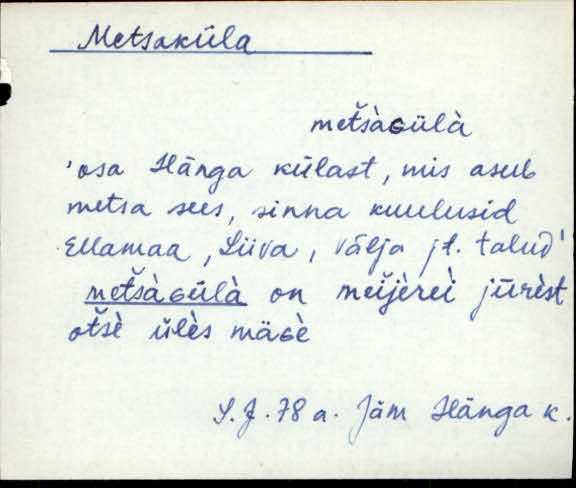 Metsaküla
metšàɢülà
'osa Hänga külast, mis asub
metsa sees, sinna kuulusid
Ellamaa, Liiva, Välja jt. talud'
metšàɢülà on meijèrei jūrèst
otšè ülès mäɢè
S.J. 78 a. Jäm Hänga k.